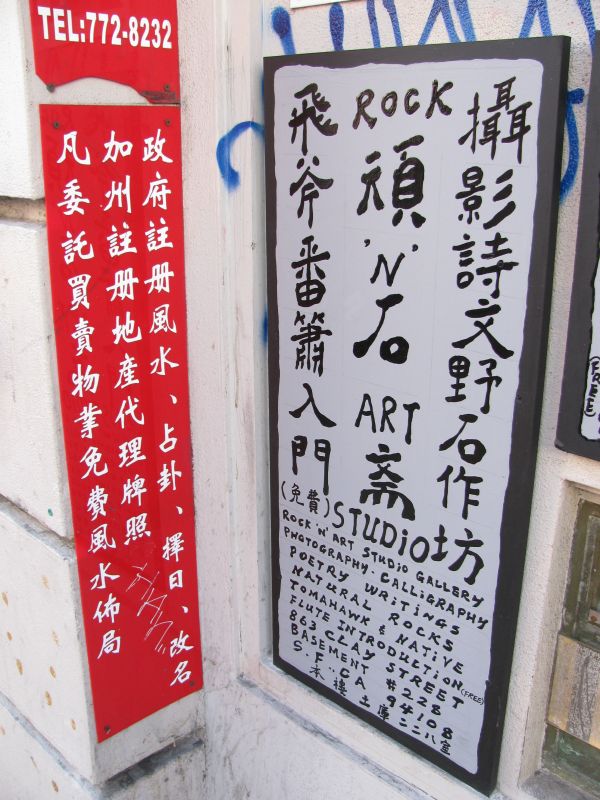 TEL:772-8232
政府註册風水、占卦、擇日、改名
加州註册地產代理牌照
凡委託買賣物業免費風水佈局
攝影詩文野石作坊
ROCK 頑 'N' 石 ART 斋 STUDIO
飛斧番簫入門(免費)
ROCK 'N' ART STUDIO GALLERY
PHOTOGRAPHY. CALLIGRAPHY
POETRY WRITINGS
NATURAL ROCKS
TOMAHAWK & NATIVE
FLUTE INTRODUCTION (FREE)
863 CLAY STREET
BASEMENT # 228
S.F. CA 94108
本樓土庫二二八室
(FREE)